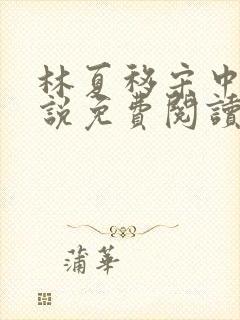 林夏移宗中
說免費閱讀
蒲華